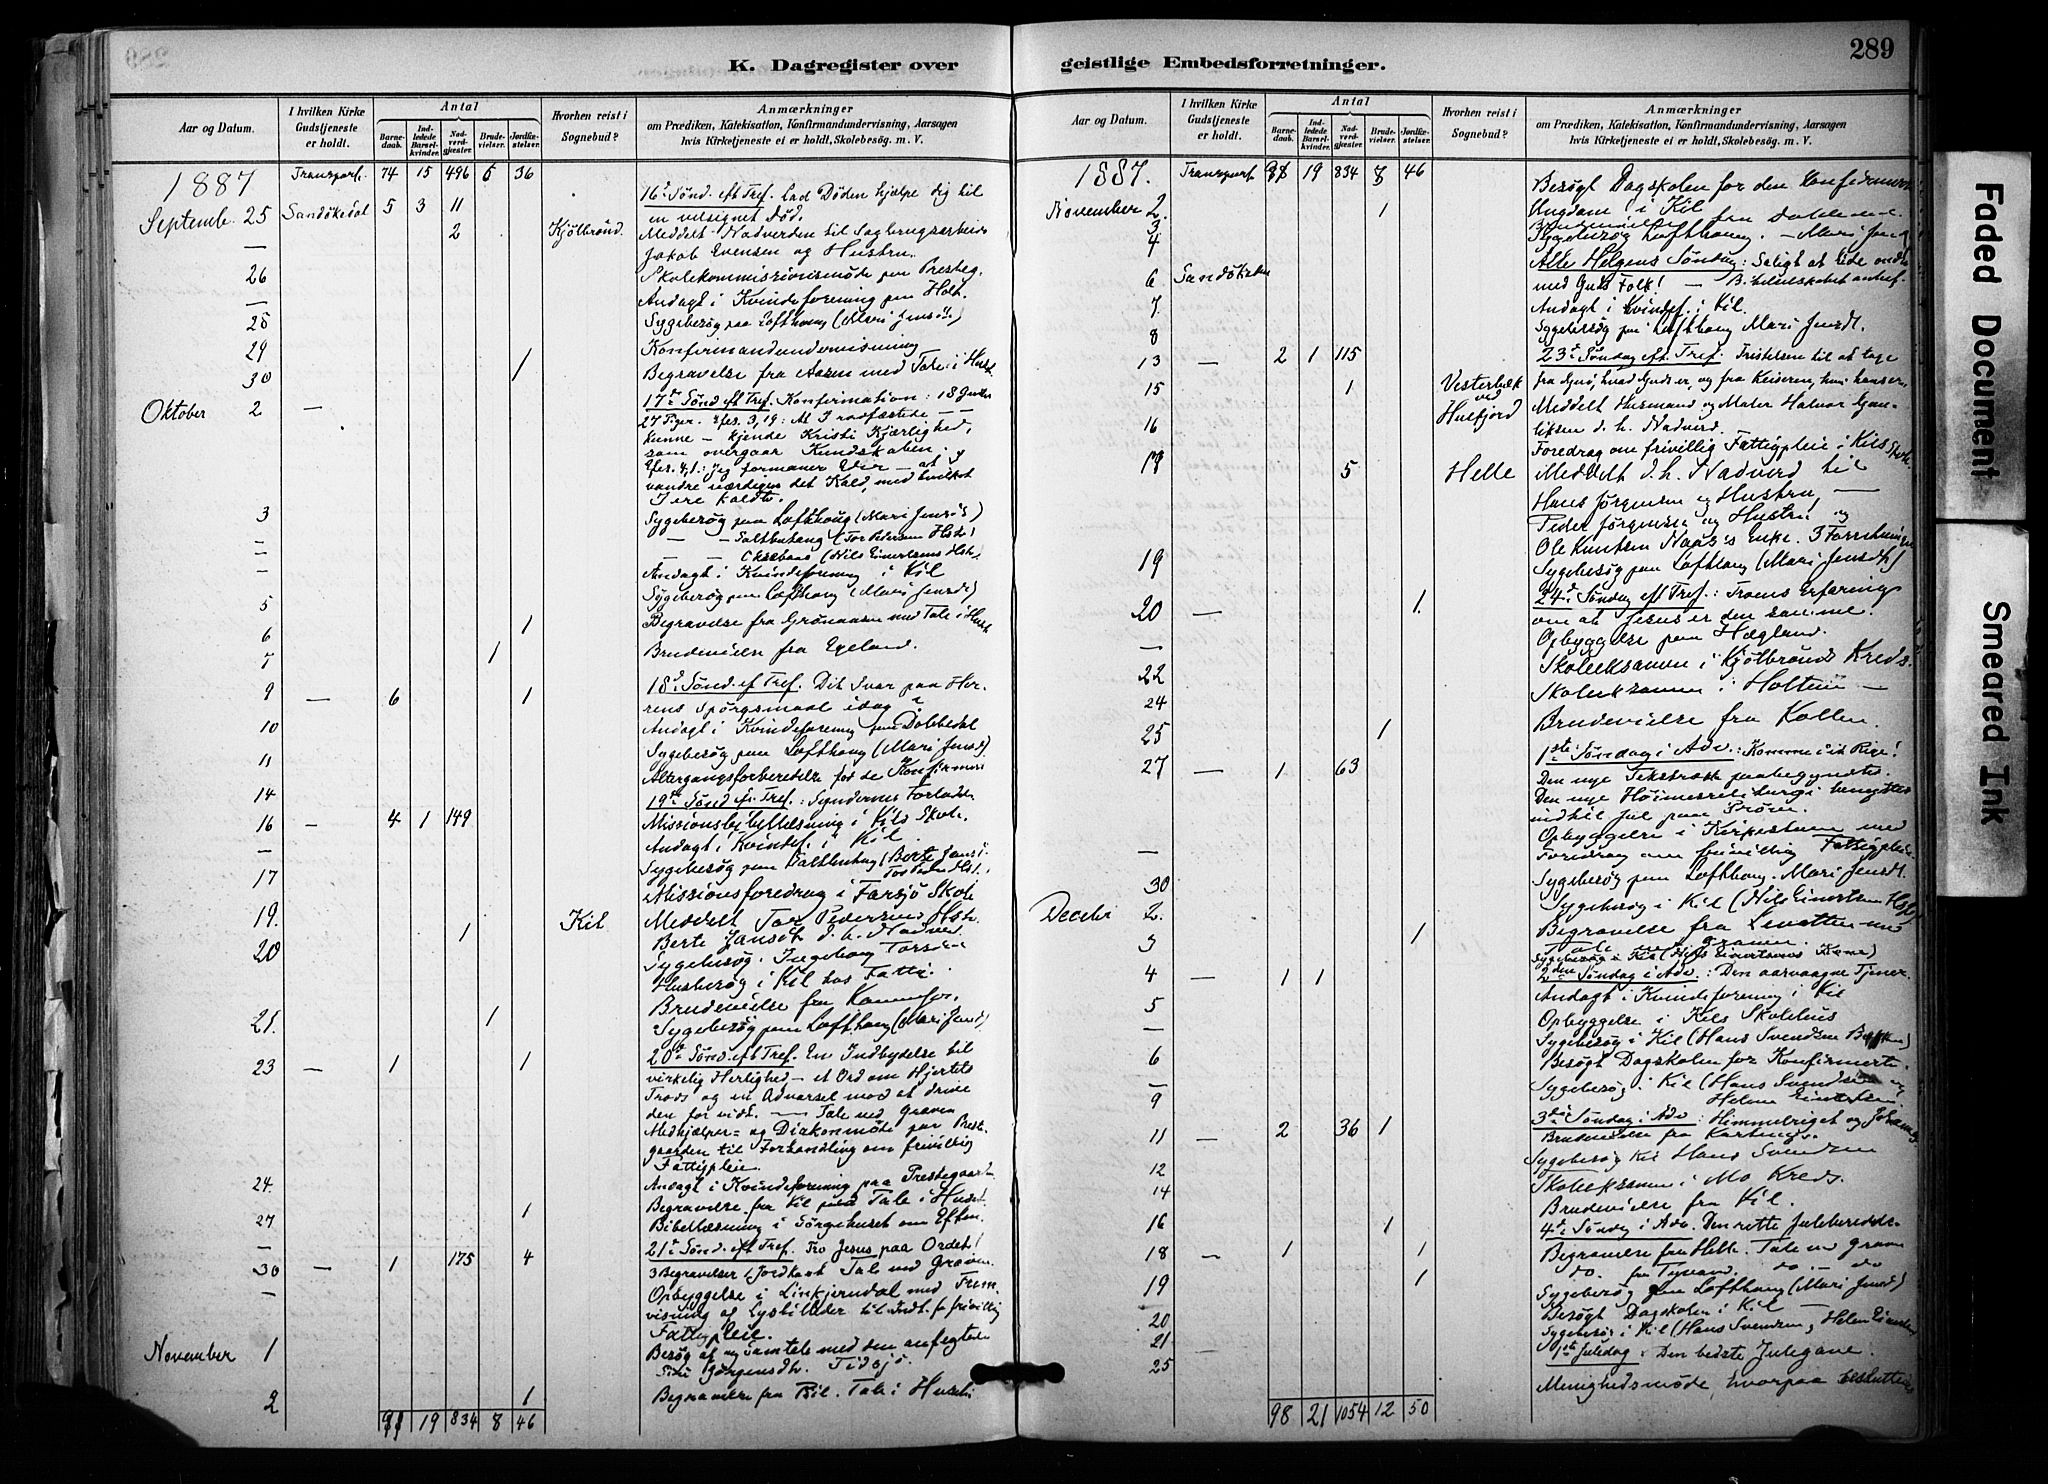 289
K. Dagregister over
geistlige Embedsforretninger.
Aar og Datum.
I hvilken Kirke Gudstjeneste er holdt.
Antal
Barnedaab.
Indledede Barselkvinder.
Nadverdgjæster.
Brudevielser.
Jordfæstelser.
Hvorhen reist i Sognebud?
Anmærkninger
om Prædiken, Katekisation, Konfirmandundervisning, Aarsagen
hvis Kirketjeneste ei er holdt, Skolebesøg. m. V.
1887 Transport. 74 15 496 5 36
16d. Sønd. eft. Tref. Lad Døden hjælpe dig til
Septemb. 25 Sandökedal 5 3 11
en velsignet Død.
— 2 Kjölbrönd. Meddelt Nadverden til Sagbrugsarbeider
Jakob Evensen og Hustru.
26 Skolekommissionsmöde paa Presteg.
— Andagt i Kvindeforening paa Holt.
28 Sygebesøg paa Lofthoug (Mari Jensdt.)
29 Konfirmandundervisning
30 1 Begravelse fra Aasen med Tale i Huset
Oktober 2 — 17de Sønd eft Tref. Konfirmation: 18 Gutter
27 Piger. Efes. 3,19: At I rodfæstede — —
kunne — kjende Kristi Kjærlighed,
som overgaar Kundskaben. og
Efes. 4,1: Jeg formaner Eder — at
vandre værdigen det Kald, med hvilket
I ere kaldte.
3 Sygebesøg paa Lofthoug (Mari Jensdt)
— — — Saltbutang (Tor Pedersens Hstr.)
— — — (Nils Einertsens Hst.
— Andagt i Kvindeforening i Kil
5 Sygebesøg paa Lofthoug (Mari Jensdt)
6 1 Begravelse fra Grönaasen med Tale i Huset
7 1 Brudevielse fra Egeland.
9 — 6 1 18d. Sønd. ef Tref. Dit Svar paa Her-
rens Spörgsmaal idag?
10 Andagt i Kvindeforening paa Dobbedal
11 Sygebesøg paa Lofthoug (Mari Jensdt)
14 Altergangsforberedelse for de Konfirmere
16 — 4 1 149 19de Sønd ef. Tref.: Syndernes Forladelse
— Missionsbibellæsning i Kils Skole.
17 Andagt i Kvindef. i Kil
Sygebesøg paa Saltbutang (Berte Jansd.
Tor Peders Hst.)
19. Missionsforedrag i Farsjö Skole
20 1 Kil Meddelt Tor Pedersens Hstr.
Berte Jansdt d. h. Nadverd.
Sygebesøg. Ingeborg Torsdt.
Husbesøg i Kil hos Fattige.
21. 1 Brudevielse fra
Sygebesøg paa Lofthoug (Mari Jensdt)
23 — 1 1 20d. Sønd. eft Tref. En Indbydelse til
virkelig Herlighed — et Ord om Hjertets
Trods og en Advarsel mod at drive
den for vidt. — Tale ved Graven
Medhjælper- og Diakonmöde paa Preste-
gaarden til Forhandling om frivillig
Fattigpleie.
24. Andagt i Kvindeforening paa Prestegaarden
27 1 Begravelse fra Kil med Tale i Huset.
— Bibellæsning i Sörgehuset om Eften.
30 — 1 175 4 21d Sønd eft Tref. Tro Jesus paa Ordet!
3 Begravelser 1 Jordkast Tale ved Graven
— Opbyggelse i Linkjerndal med Frem-
visning af Lysbilleder til Indt. for frivillig
Fattigpleie.
November 1 Besøg af og Samtale med den anfegtede
Siri Jörgensdt. Tidsjö.
2 1 Begravelse fra Kil. Tale i Huset.
98 19 834 8 46
1887. Transport 98 19 834 8 46
Besøgt Dagskolen for den konfirmerede
Ungdom i Kil
November 2. 1 Brudevielse fra Dobbedal.
3
4 Sygebesøg Lofthoug. — Mari Jensd.
6 Sandökedal Alle Helgens Söndag: Saligt at lide ondt
med Guds Folk! —
7 Andagt i Kvindef. i Kil.
8 Sygebesøg paa Lofthoug Mari Jensdt.
13 — 2 1 115 23d Søndag eft. Tref. Fristelsen til at tage
fra Gud, hvad Guds er, og fra Keiseren, hvad hans er.
15 1 Vesterbæk ved Hulfjord Meddelt Husmand og Maler Halvor
d. h. Nadverd.
16 Foredrag om frivillig Fattigpleie i Kils Skole
18 5 Helle Meddelt d. h. Nadverd til
Hans Jörgensen og Hustru, —
Peder Jörgensen og Hustru og
Ole Knutsen Naas's Enke. 3 Forretninger
19 Sygebesøg paa Lofthoug (Mari Jensdt)
20 — 1. 24d. Søndag eft Tref.: Troens Erfaring
om at Jesus er den samme.
— Opbyggelse paa Hægland.
22 Skoleeksamen i Kjölbrönds Kreds.
24 Skoleeksamen i Holteim —
25 1 Brudevielse fra Kollen.
27 — 1 63 1ste Søndag i Adv.: Komme dit Rige!
Den nye Tekstrække paabegyndtes.
Den nye Höimesseliturgi benyttes
indtil Jul paa Pröve.
— Opbyggelse i Kirkestuen med
Foredrag om frivillig Fattigpleie.
30 Sygebesøg paa Lofthoug. Mari Jensdt.
Decebr 2. Sygebesøg i Kil (Nils Einertsens Hst)
3 1 Begravelse fra med
Tale ved Graven.
Sygebesøg i Kil (Nils Einertsens Kone)
4 — 1 1 2den Søndag i Adv.: Den aarvaagne Tjener
5 Andagt i Kvindeforening i Kil
— Opbyggelse i Kils Skolehus
6 Sygebesøg i Kil (Hans Svendsen Bekken)
— Besøgt Dagskolen for Konfirmerte.
9 Sygebesøg i Kil (Hans Svendsen og
Helene Einertsen)
11 — 2 36 1 3die Søndag i Adv: Himmelriget og Johannes
Brudevielse fra
12 Sygebesøg Kil Hans Svendsen
14 Skoleeksamen i Mo Kreds.
16 1 Brudevielse fra Kil.
18 — 1 1 4d Søndag i Adv. Den rette Juleberedelse.
Begravelse fra Helle. Tale ved Graven
19 1 do. fra Tyvand. do — do
20 Sygebesøg paa Lofthoug (Mari Jensdt)
21 Besøgt Dagskolen i Kil —
Sygebesøg i Kil (Hans Svendsen, Helene Einertsen
25 — 1ste Juledag: Den bedste Julegave.
Menighedsmöde, hvorpaa besluttedes
98 21 1054 12 50
Faded Document
Smeared Ink